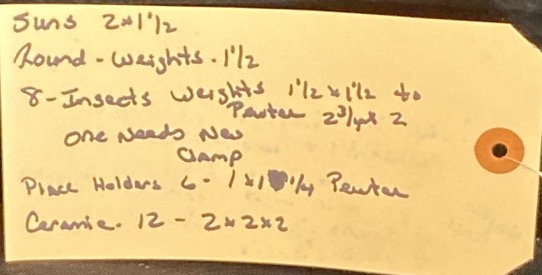 Suns 2x1 1/2
Round - Weights - 1 1/2
8 - Insects Weights 1 1/2 x 1 1/2 to
Pewter 2 3/4 x 2
One Needs New
Clamp
Place Holders 6 - 1 x 1 1/4 Pewter
Ceramic. 12 - 2x2x2